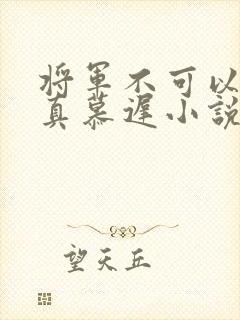 将军不可以
真慕遲小說
望天丘